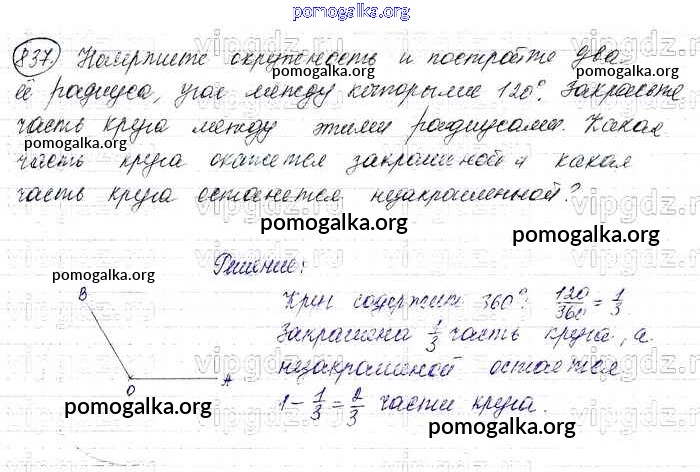 pomogalka.org
837. Начертите окружность и постройте два
её радиуса, угол между которыми 120°. Закрасьте
часть круга между этими радиусами. Какая
часть круга окажется закрашенной и какая
часть круга останется незакрашенной?
pomogalka.org
Решение:
pomogalka.org
B
Круг содержит 360°. 120/360 = 1/3.
Закрашена 1/3 часть круга, а
незакрашенной остаётся
O A
1 - 1/3 = 2/3 части круга.
pomogalka.org
vipgdz.ru